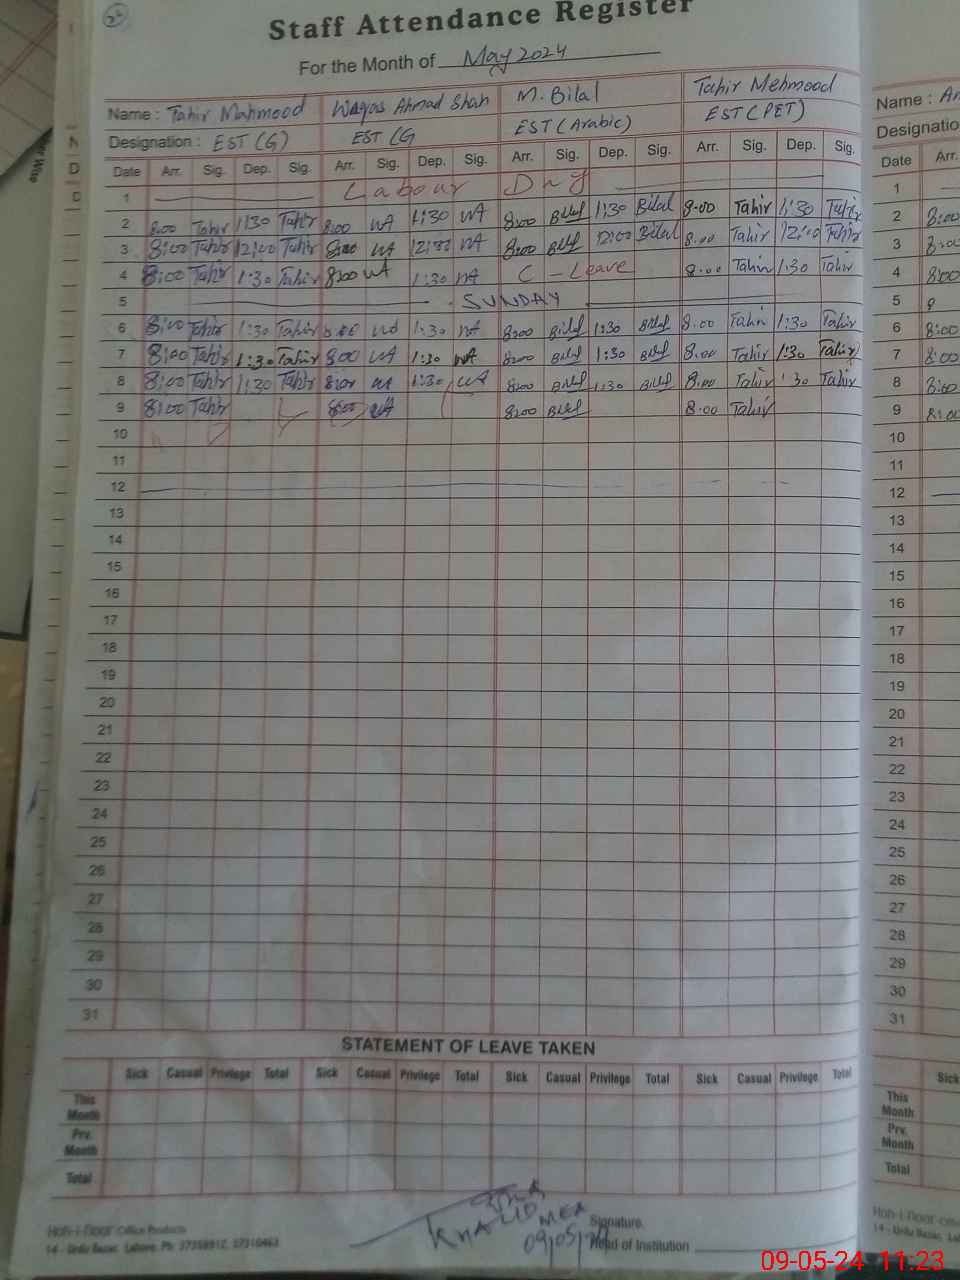 Staff Attendance Register
For the Month of May 2024
Name : Tahir Mahmood Waqas Ahmad Shah M. Bilal Tahir Mehmood
Designation : EST (G) EST (G EST (Arabic) EST (PET)
Date Arr. Sig. Dep. Sig. Arr. Sig. Dep. Sig. Arr. Sig. Dep. Sig. Arr. Sig. Dep. Sig.
1 Labour Day
2 8:00 Tahir 1:30 Tahir 8:00 WA 1:30 WA 8:00 Bilal 1:30 Bilal 8.00 Tahir 1:30 Tahir
3 8:00 Tahir 12:00 Tahir 8:00 WA 12:00 WA 8:00 Bilal 12:00 Bilal 8.00 Tahir 12:00 Tahir
4 8:00 Tahir 1:30 Tahir 8:00 WA 1:30 WA C-Leave 8.00 Tahir 1:30 Tahir
5 SUNDAY
6 8:00 Tahir 1:30 Tahir 8:00 WA 1:30 WA 8:00 Bilal 1:30 Bilal 8.00 Tahir 1:30 Tahir
7 8:00 Tahir 1:30 Tahir 8:00 WA 1:30 WA 8:00 Bilal 1:30 Bilal 8.00 Tahir 1:30 Tahir
8 8:00 Tahir 1:30 Tahir 8:00 WA 1:30 WA 8:00 Bilal 1:30 Bilal 8.00 Tahir 1:30 Tahir
9 8:00 Tahir 8:00 WA 8:00 Bilal 8.00 Tahir
10
11
12
13
14
15
16
17
18
19
20
21
22
23
24
25
26
27
28
29
30
31
STATEMENT OF LEAVE TAKEN
Sick Casual Privilege Total Sick Casual Privilege Total Sick Casual Privilege Total Sick Casual Privilege Total
This Month
Prv. Month
Total
KHALID MEA
09/05/24
Signature.
Head of Institution
Hah-i-Noor Office Products
14 - Urdu Bazar, Lahore. Ph:
Name :
Designatio
Date Arr.
1
2 8:00
3 8:00
4 8:00
5
6 8:00
7 8:00
8 8:00
9 8:00
10
11
12
13
14
15
16
17
18
19
20
21
22
23
24
25
26
27
28
29
30
31
Sick
This Month
Prv. Month
Total
14 - Urdu Bazar, Lah
09-05-24 11:23